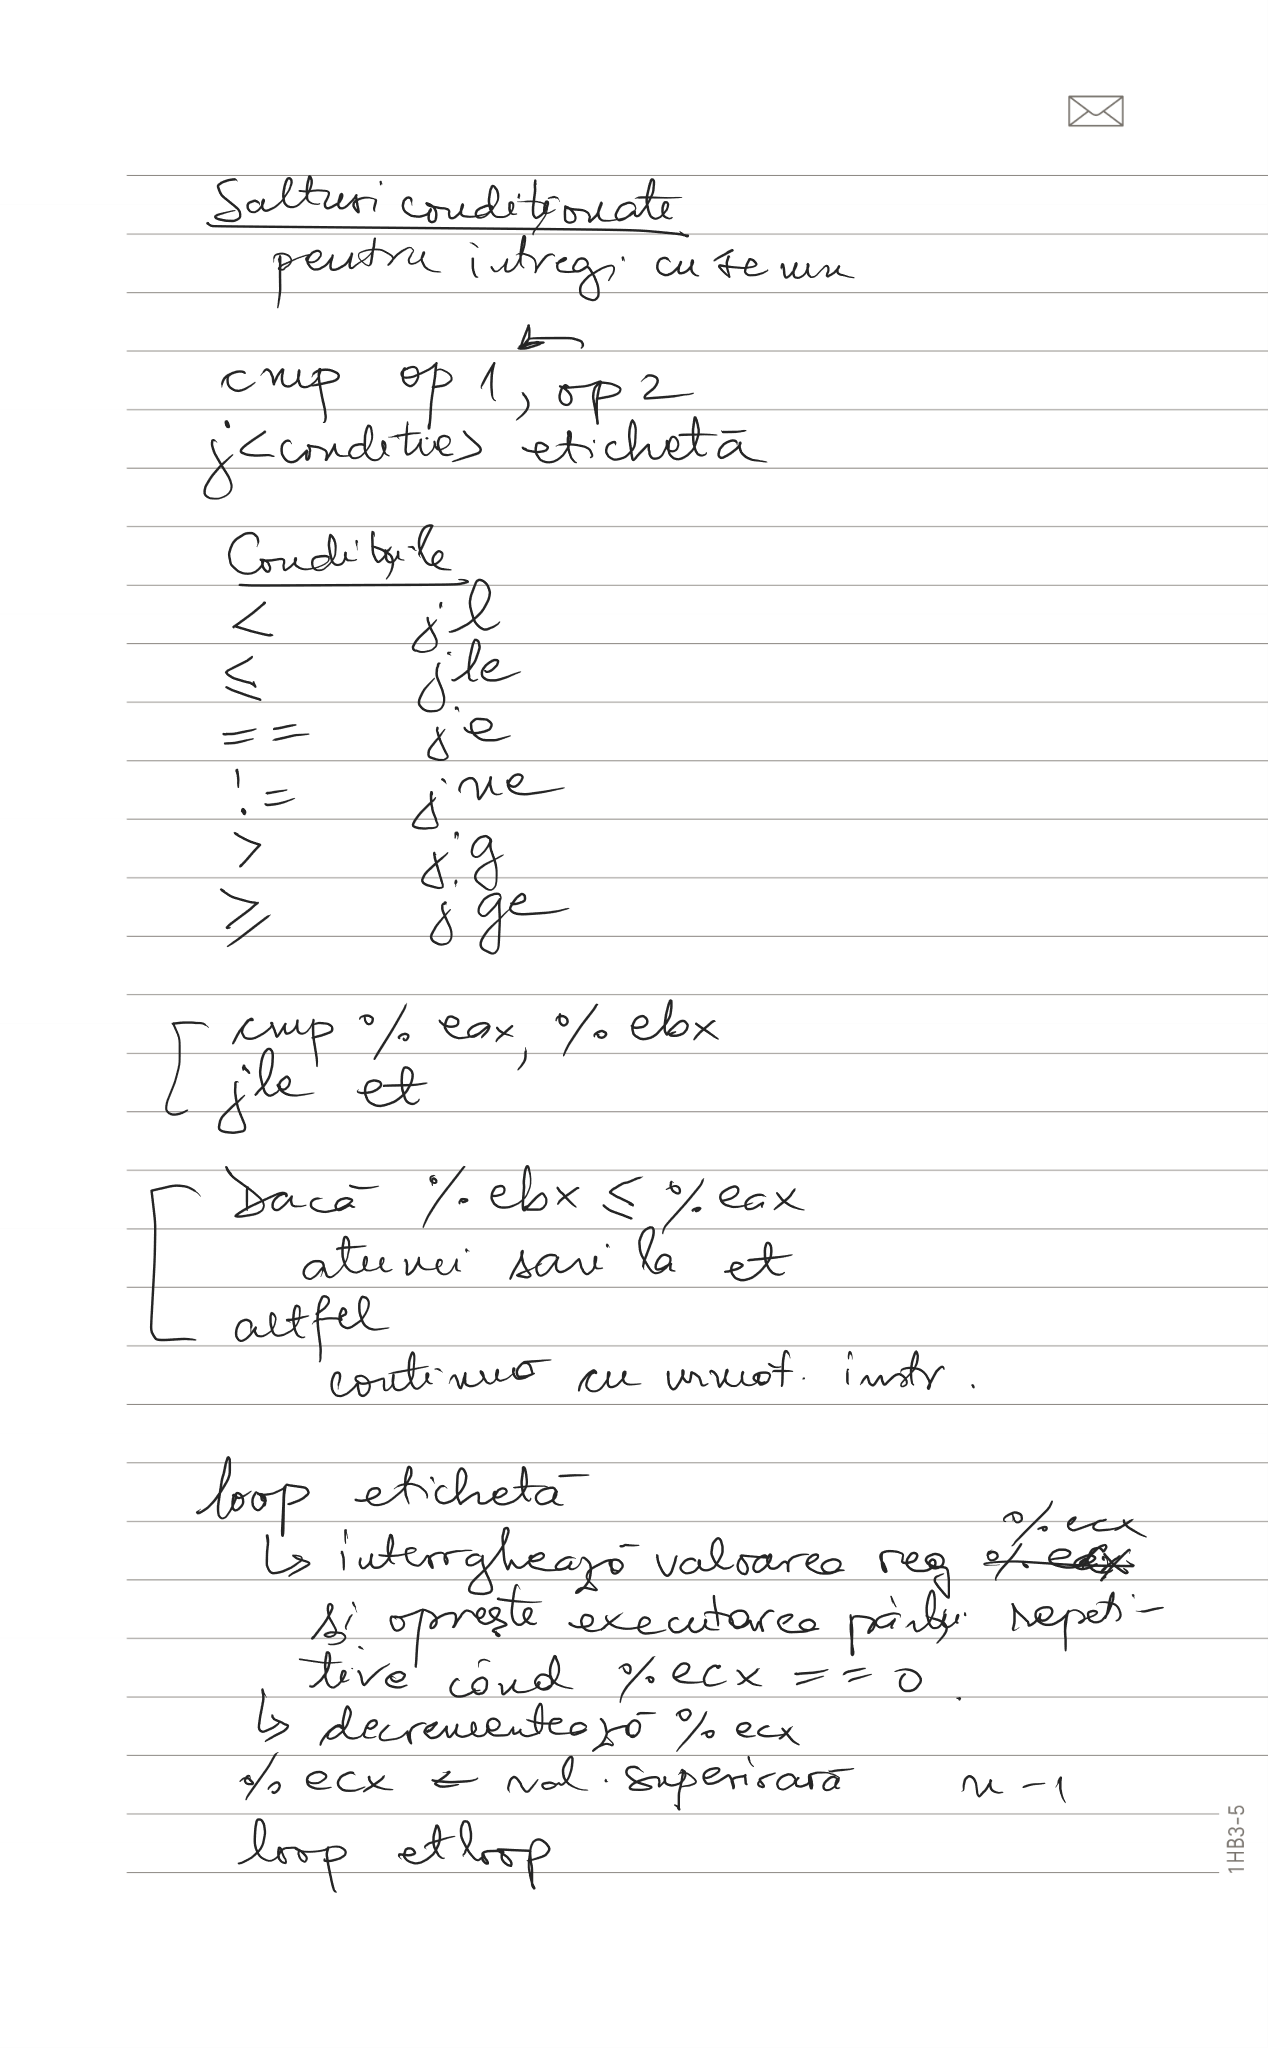 Salturi condiționate
pentru întregi cu semn
cmp op1, op2
j<condiție> etichetă
Condițiile
< jl
≤ jle
== je
!= jne
> jg
≥ jge
cmp %eax, %ebx
jle et
Dacă %ebx ≤ %eax
atunci sari la et
altfel
continuă cu următ. instr.
loop etichetă
%ecx
↳ interoghează valoarea reg
și oprește executarea părții repeti-
tive când %ecx == 0.
↳ decrementează %ecx
%ecx ← val. superioară n-1
loop etloop
1HB3-5